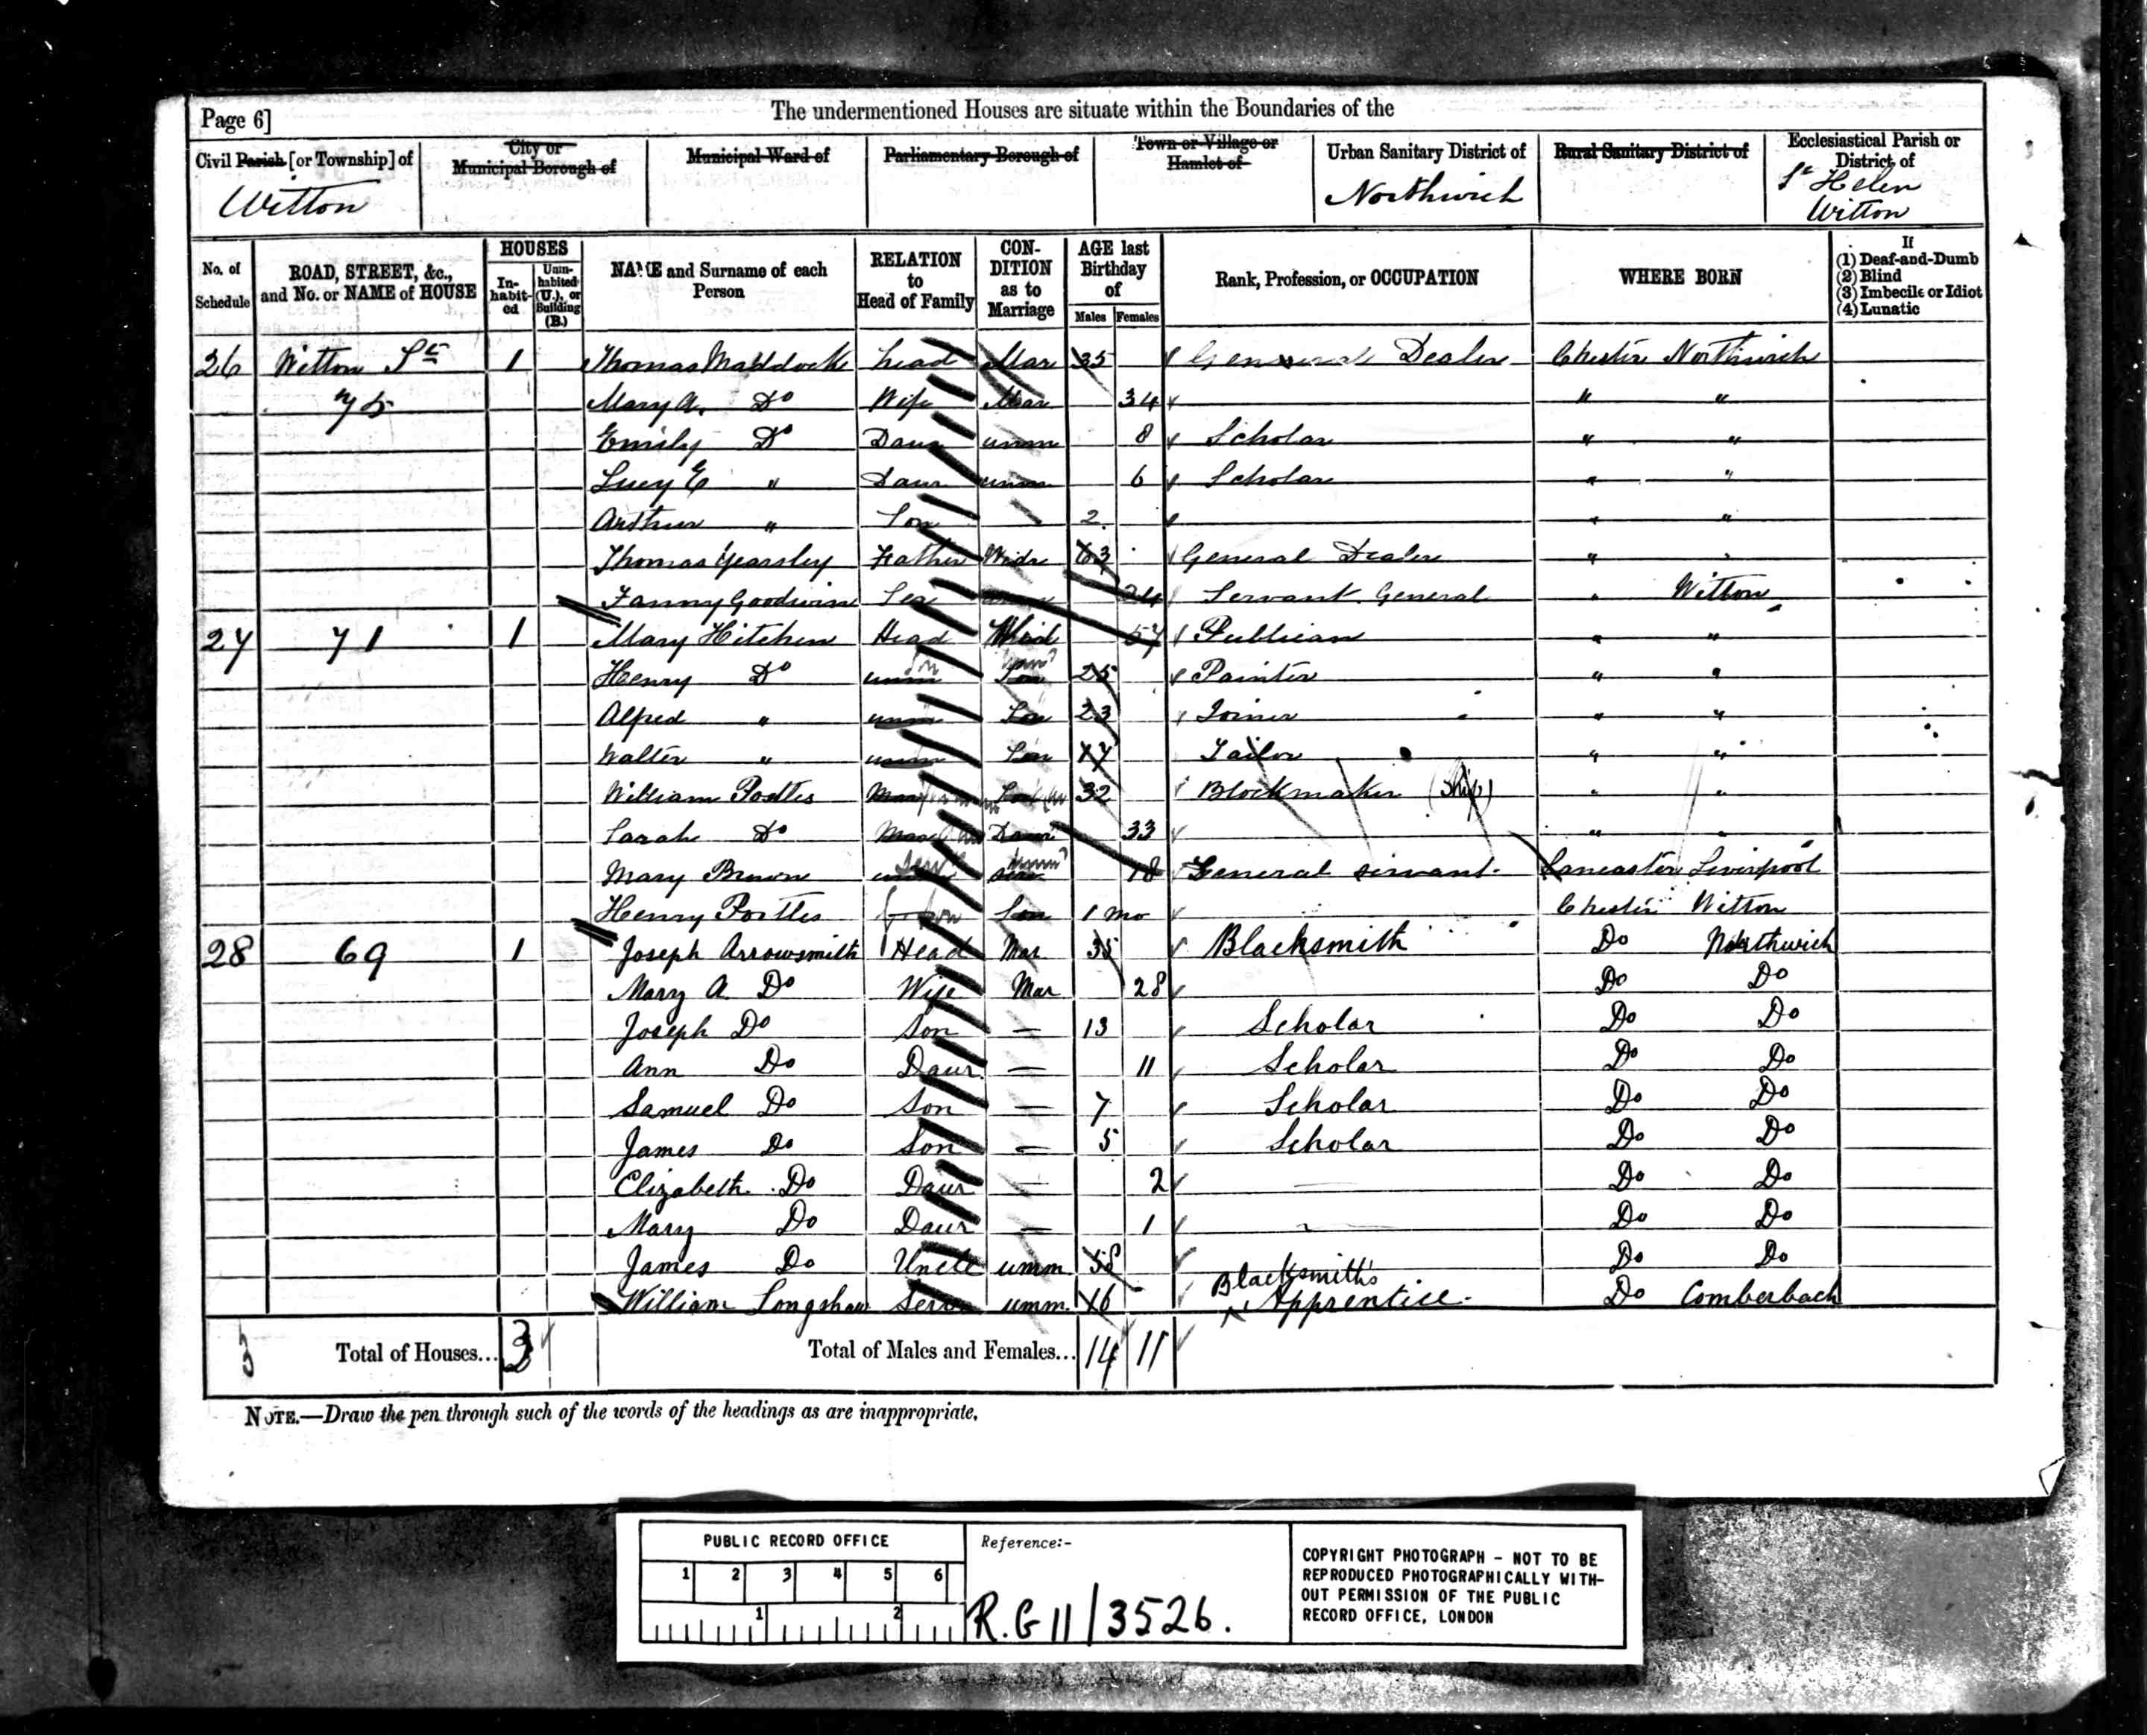 Page 6]
The undermentioned Houses are situate within the Boundaries of the
Civil Parish [or Township] of
Witton
City or Municipal Borough of
Municipal Ward of
Parliamentary Borough of
Town or Village or Hamlet of
Urban Sanitary District of
Northwich
Rural Sanitary District of
Ecclesiastical Parish or District of
St Helen
Witton
No. of Schedule
ROAD, STREET, &c., and No. or NAME of HOUSE
HOUSES
In-habit-ed
Unin-habited (U.), or Building (B.)
NAME and Surname of each Person
RELATION to Head of Family
CON-DITION as to Marriage
AGE last Birthday of
Males Females
Rank, Profession, or OCCUPATION
WHERE BORN
If
(1) Deaf-and-Dumb
(2) Blind
(3) Imbecile or Idiot
(4) Lunatic
26 Witton St 1 Thomas Maddock head Mar 35 General Dealer Chester Northwich
75 Mary A. Do Wife Mar 34 " "
Emily Do Daur unm 8 Scholar " "
Lucy E " Daur unm 6 Scholar " "
Arthur " Son 2 " "
Thomas Yearsley Father Widr 63 General Dealer " "
Fanny Goodwin Ser 24 Servant General " Witton
27 71 1 Mary Hitchen Head Wid 57 Publican " "
Henry Do unm Son Son unm 25 Painter " "
Alfred " unm Son 23 Joiner " "
Walter " unm Son 17 Tailor " "
William Postles Mar 32 Blockmaker (Ship) " "
Sarah Do Mar Daur 33 " "
Mary Brown Serv unm 18 General servant. Lancaster Liverpool
Henry Postles G son Son 1 mo Chester Witton
28 69 1 Joseph Arrowsmith Head Mar 35 Blacksmith Do Northwich
Mary A. Do Wife Mar 28 Do Do
Joseph Do Son — 13 Scholar Do Do
Ann Do Daur — 11 Scholar Do Do
Samuel Do Son — 7 Scholar Do Do
James Do Son — 5 Scholar Do Do
Elizabeth Do Daur — 2 Do Do
Mary Do Daur — 1 Do Do
James Do Uncle unm 58 Do Do
William Longshaw Serv unm. 16 Blacksmith's Apprentice. Do Comberbach
3 Total of Houses... 3 Total of Males and Females... 14 11
NOTE.—Draw the pen through such of the words of the headings as are inappropriate.
PUBLIC RECORD OFFICE
1 2 3 4 5 6
1 2
Reference:-
R.G 11/3526.
COPYRIGHT PHOTOGRAPH - NOT TO BE
REPRODUCED PHOTOGRAPHICALLY WITH-
OUT PERMISSION OF THE PUBLIC
RECORD OFFICE, LONDON